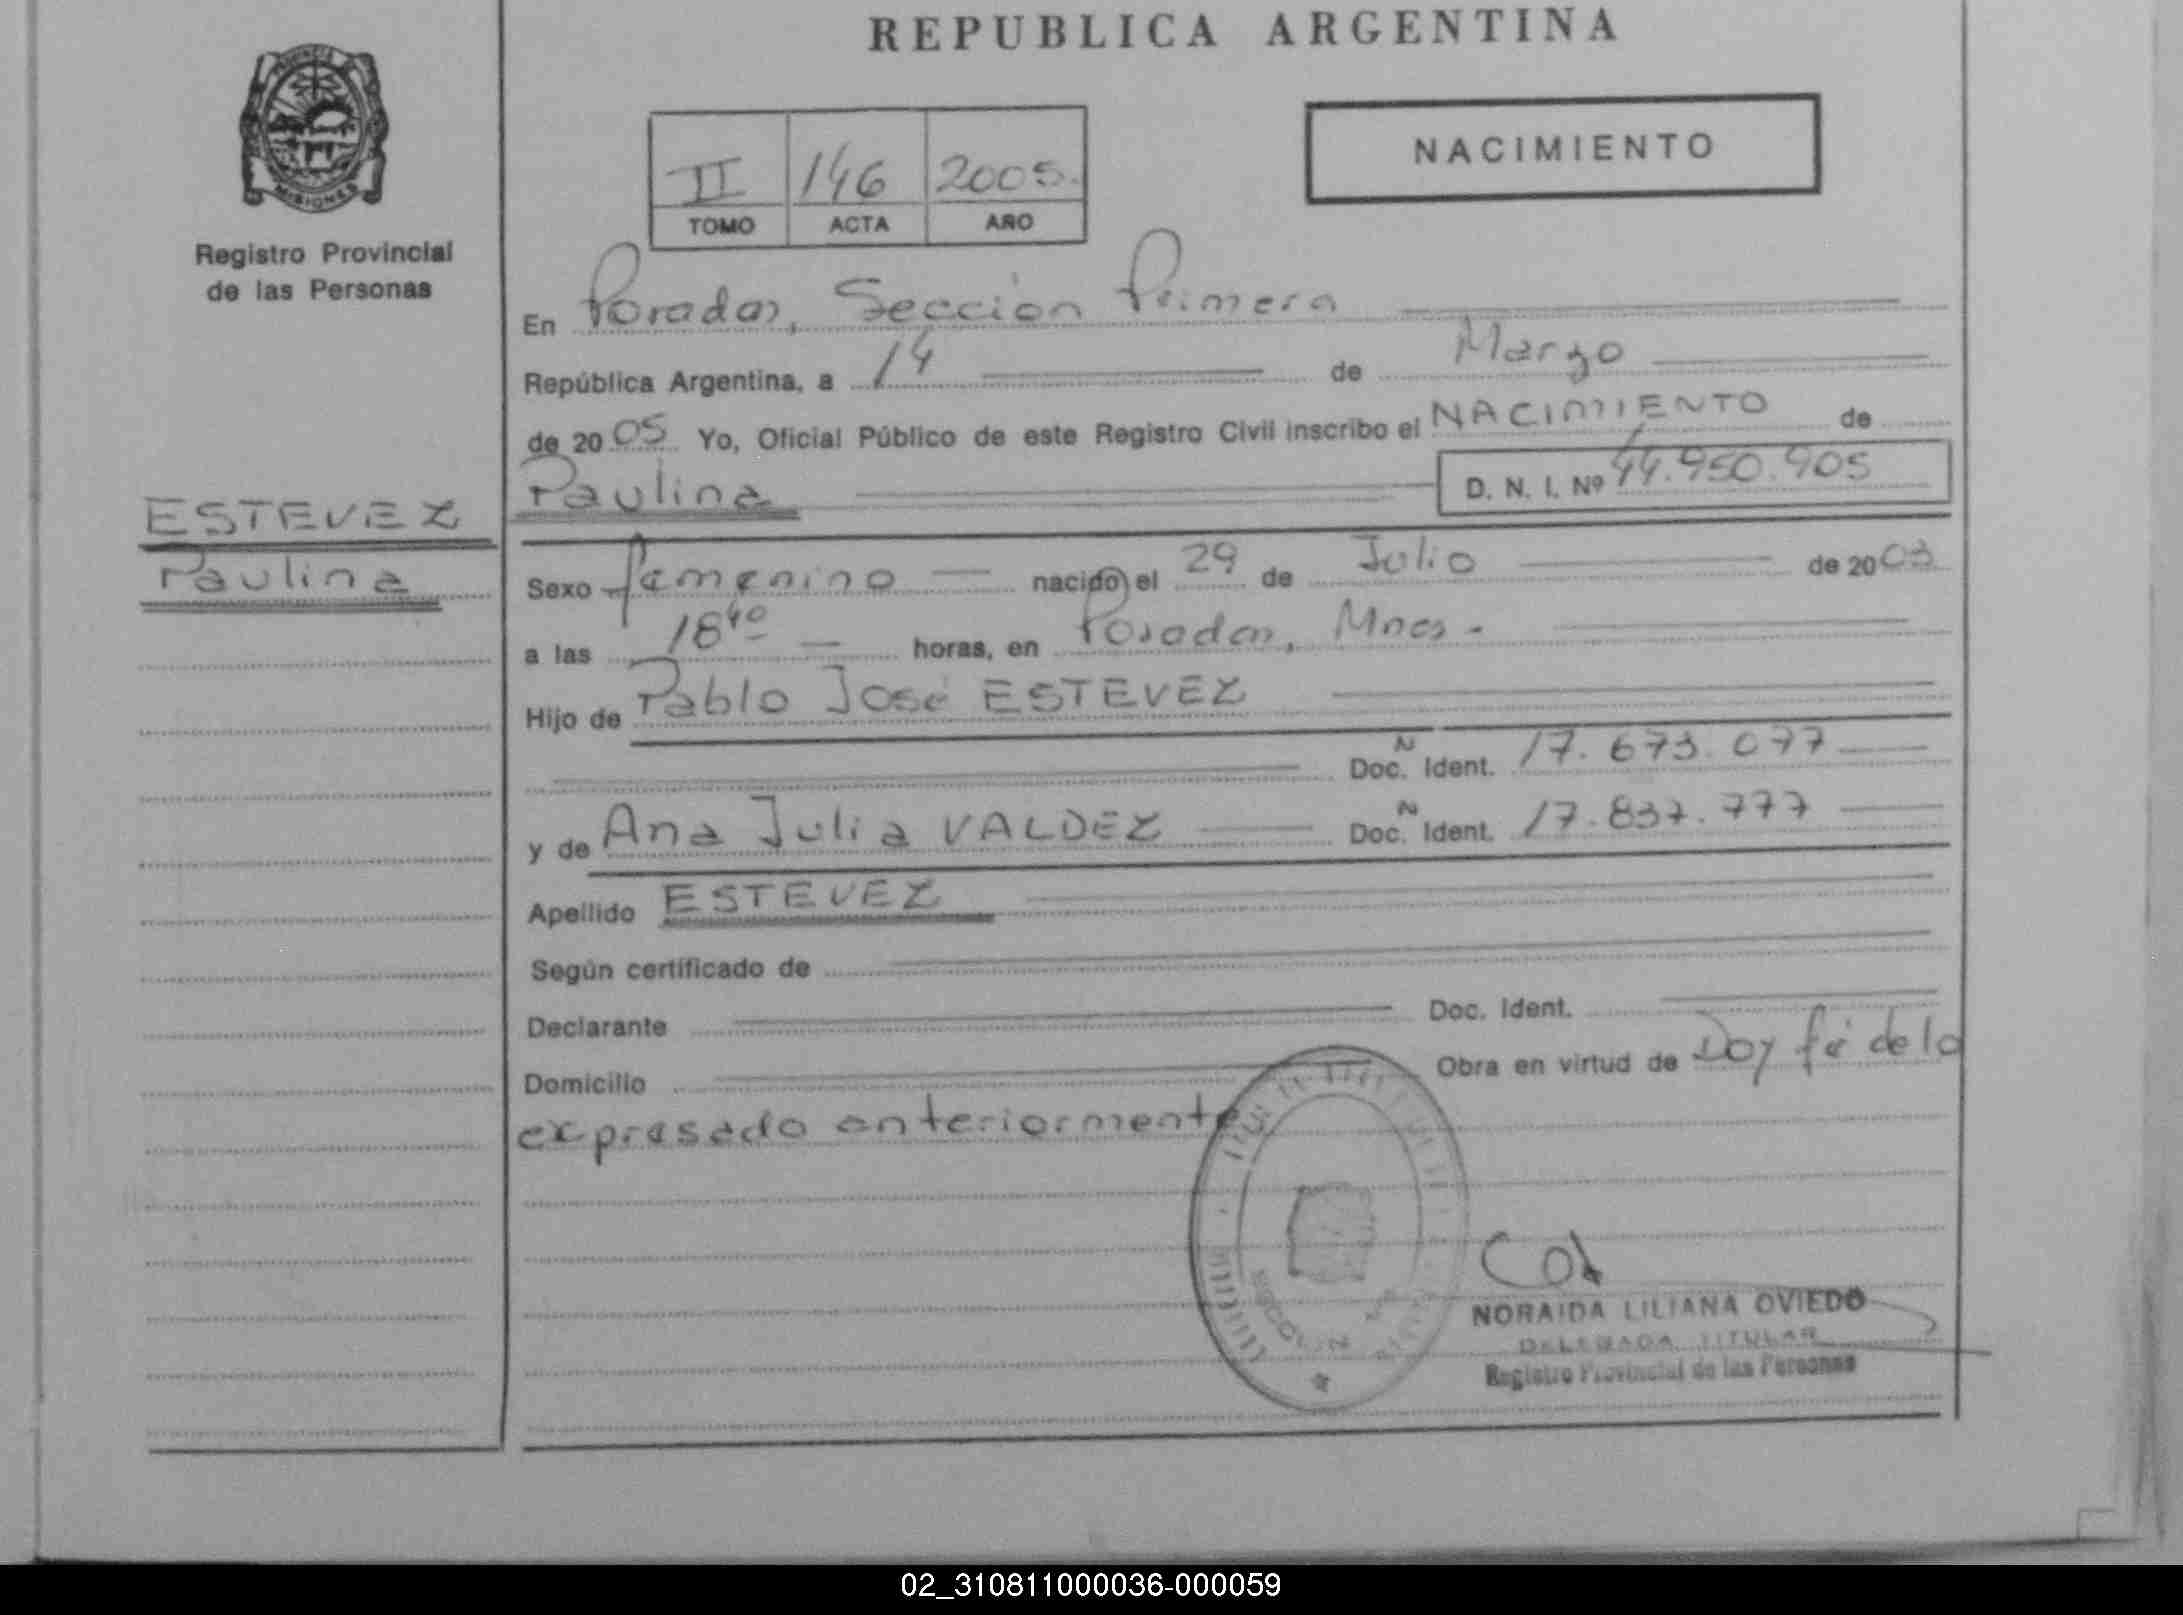 REPUBLICA ARGENTINA
PROVINCIA DE
MISIONES
Registro Provincial
de las Personas
NACIMIENTO
II 146 2005.
TOMO ACTA AÑO
En Posadas, Sección Primera
República Argentina, a 14 de Marzo
de 2005 Yo, Oficial Público de este Registro Civil inscribo el NACIMIENTO de
Paulina D. N. I. Nº 44.950.905
ESTEVEZ
Paulina
Sexo femenino nacido el 29 de Julio de 2003
a las 18 40 horas, en Posadas, Mnes.
Hijo de Pablo José ESTEVEZ
Doc. N Ident. 17.673.077
y de Ana Julia VALDEZ Doc. N Ident. 17.837.777
Apellido ESTEVEZ
Según certificado de
Declarante Doc. Ident.
Domicilio Obra en virtud de Doy fé de lo
expresado anteriormente
NORAIDA LILIANA OVIEDO
DELEGADA TITULAR
Registro Provincial de las Personas
02_310811000036-000059